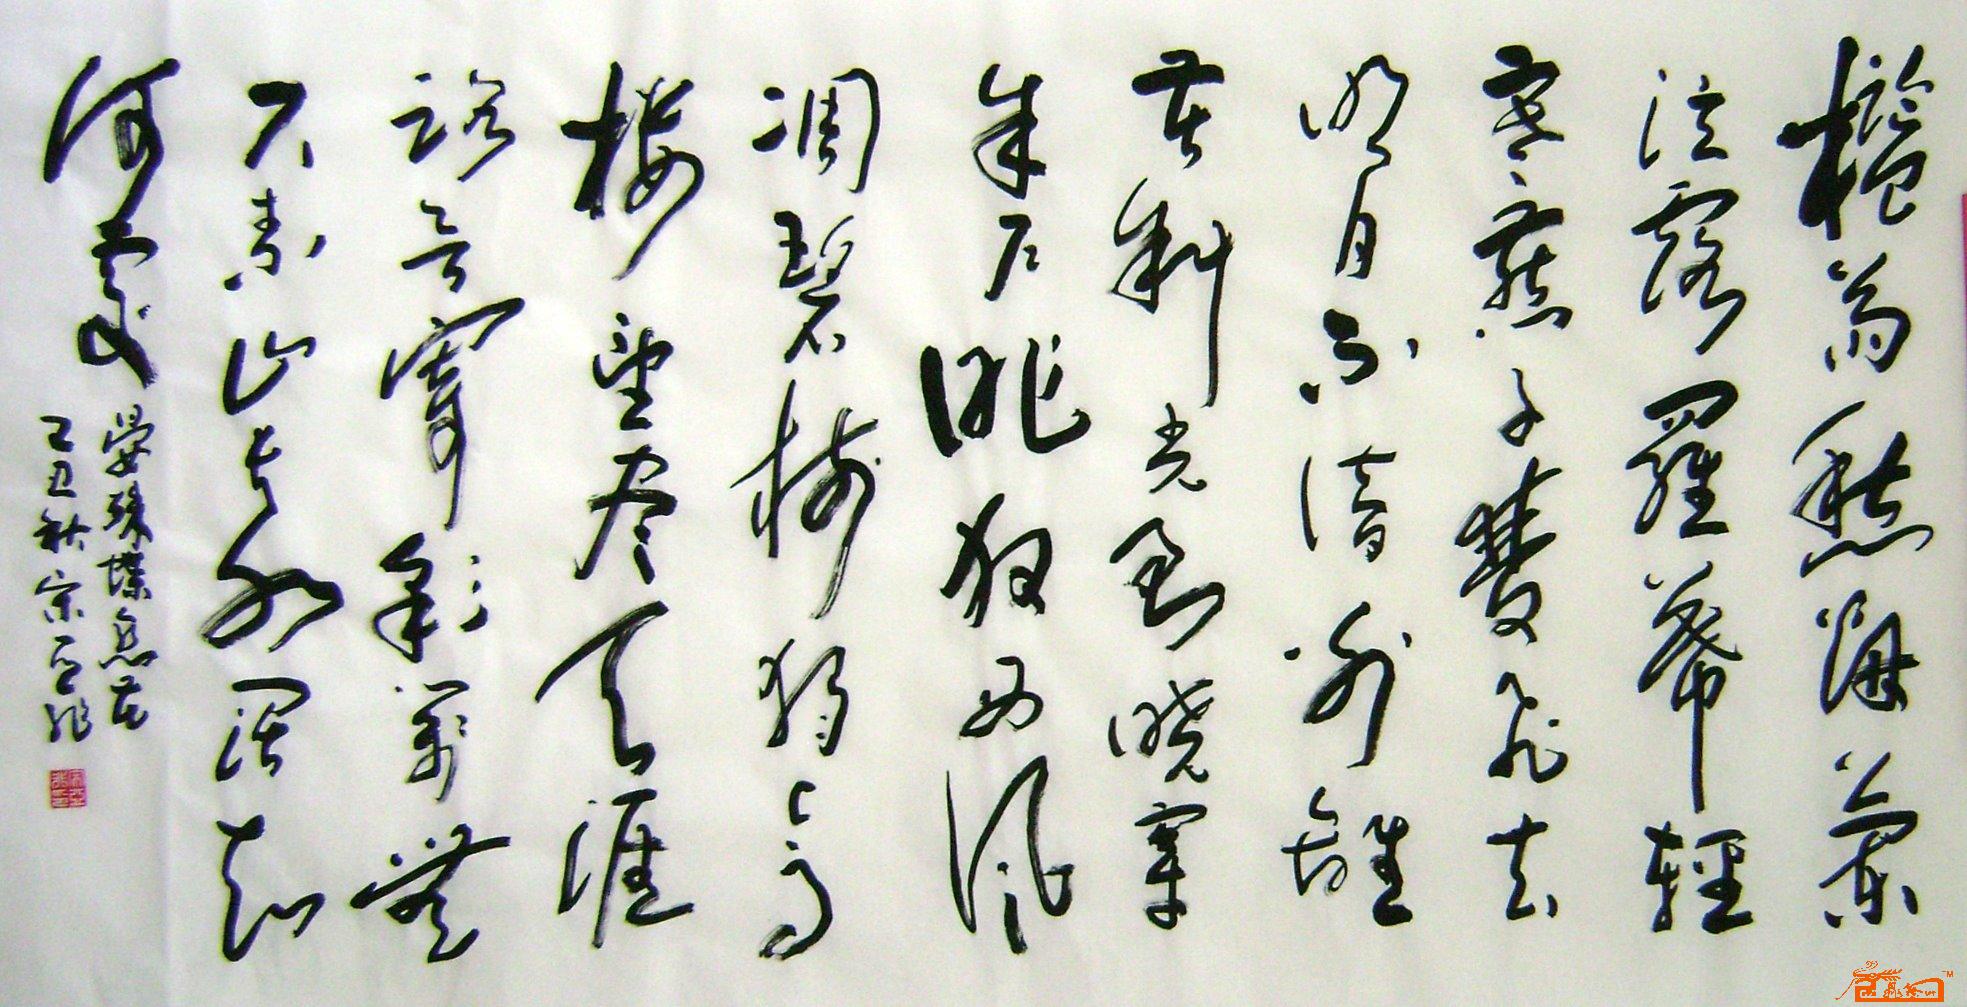 檻菊愁烟蘭
泣露羅幕輕
寒燕子雙飛去
明月不谙别離
苦斜光到曉穿
朱户昨夜西风
凋碧樹獨上高
楼望尽天涯
路欲寄彩箋無
尺素山長水闊知
何處
晏殊蝶恋花
己丑秋